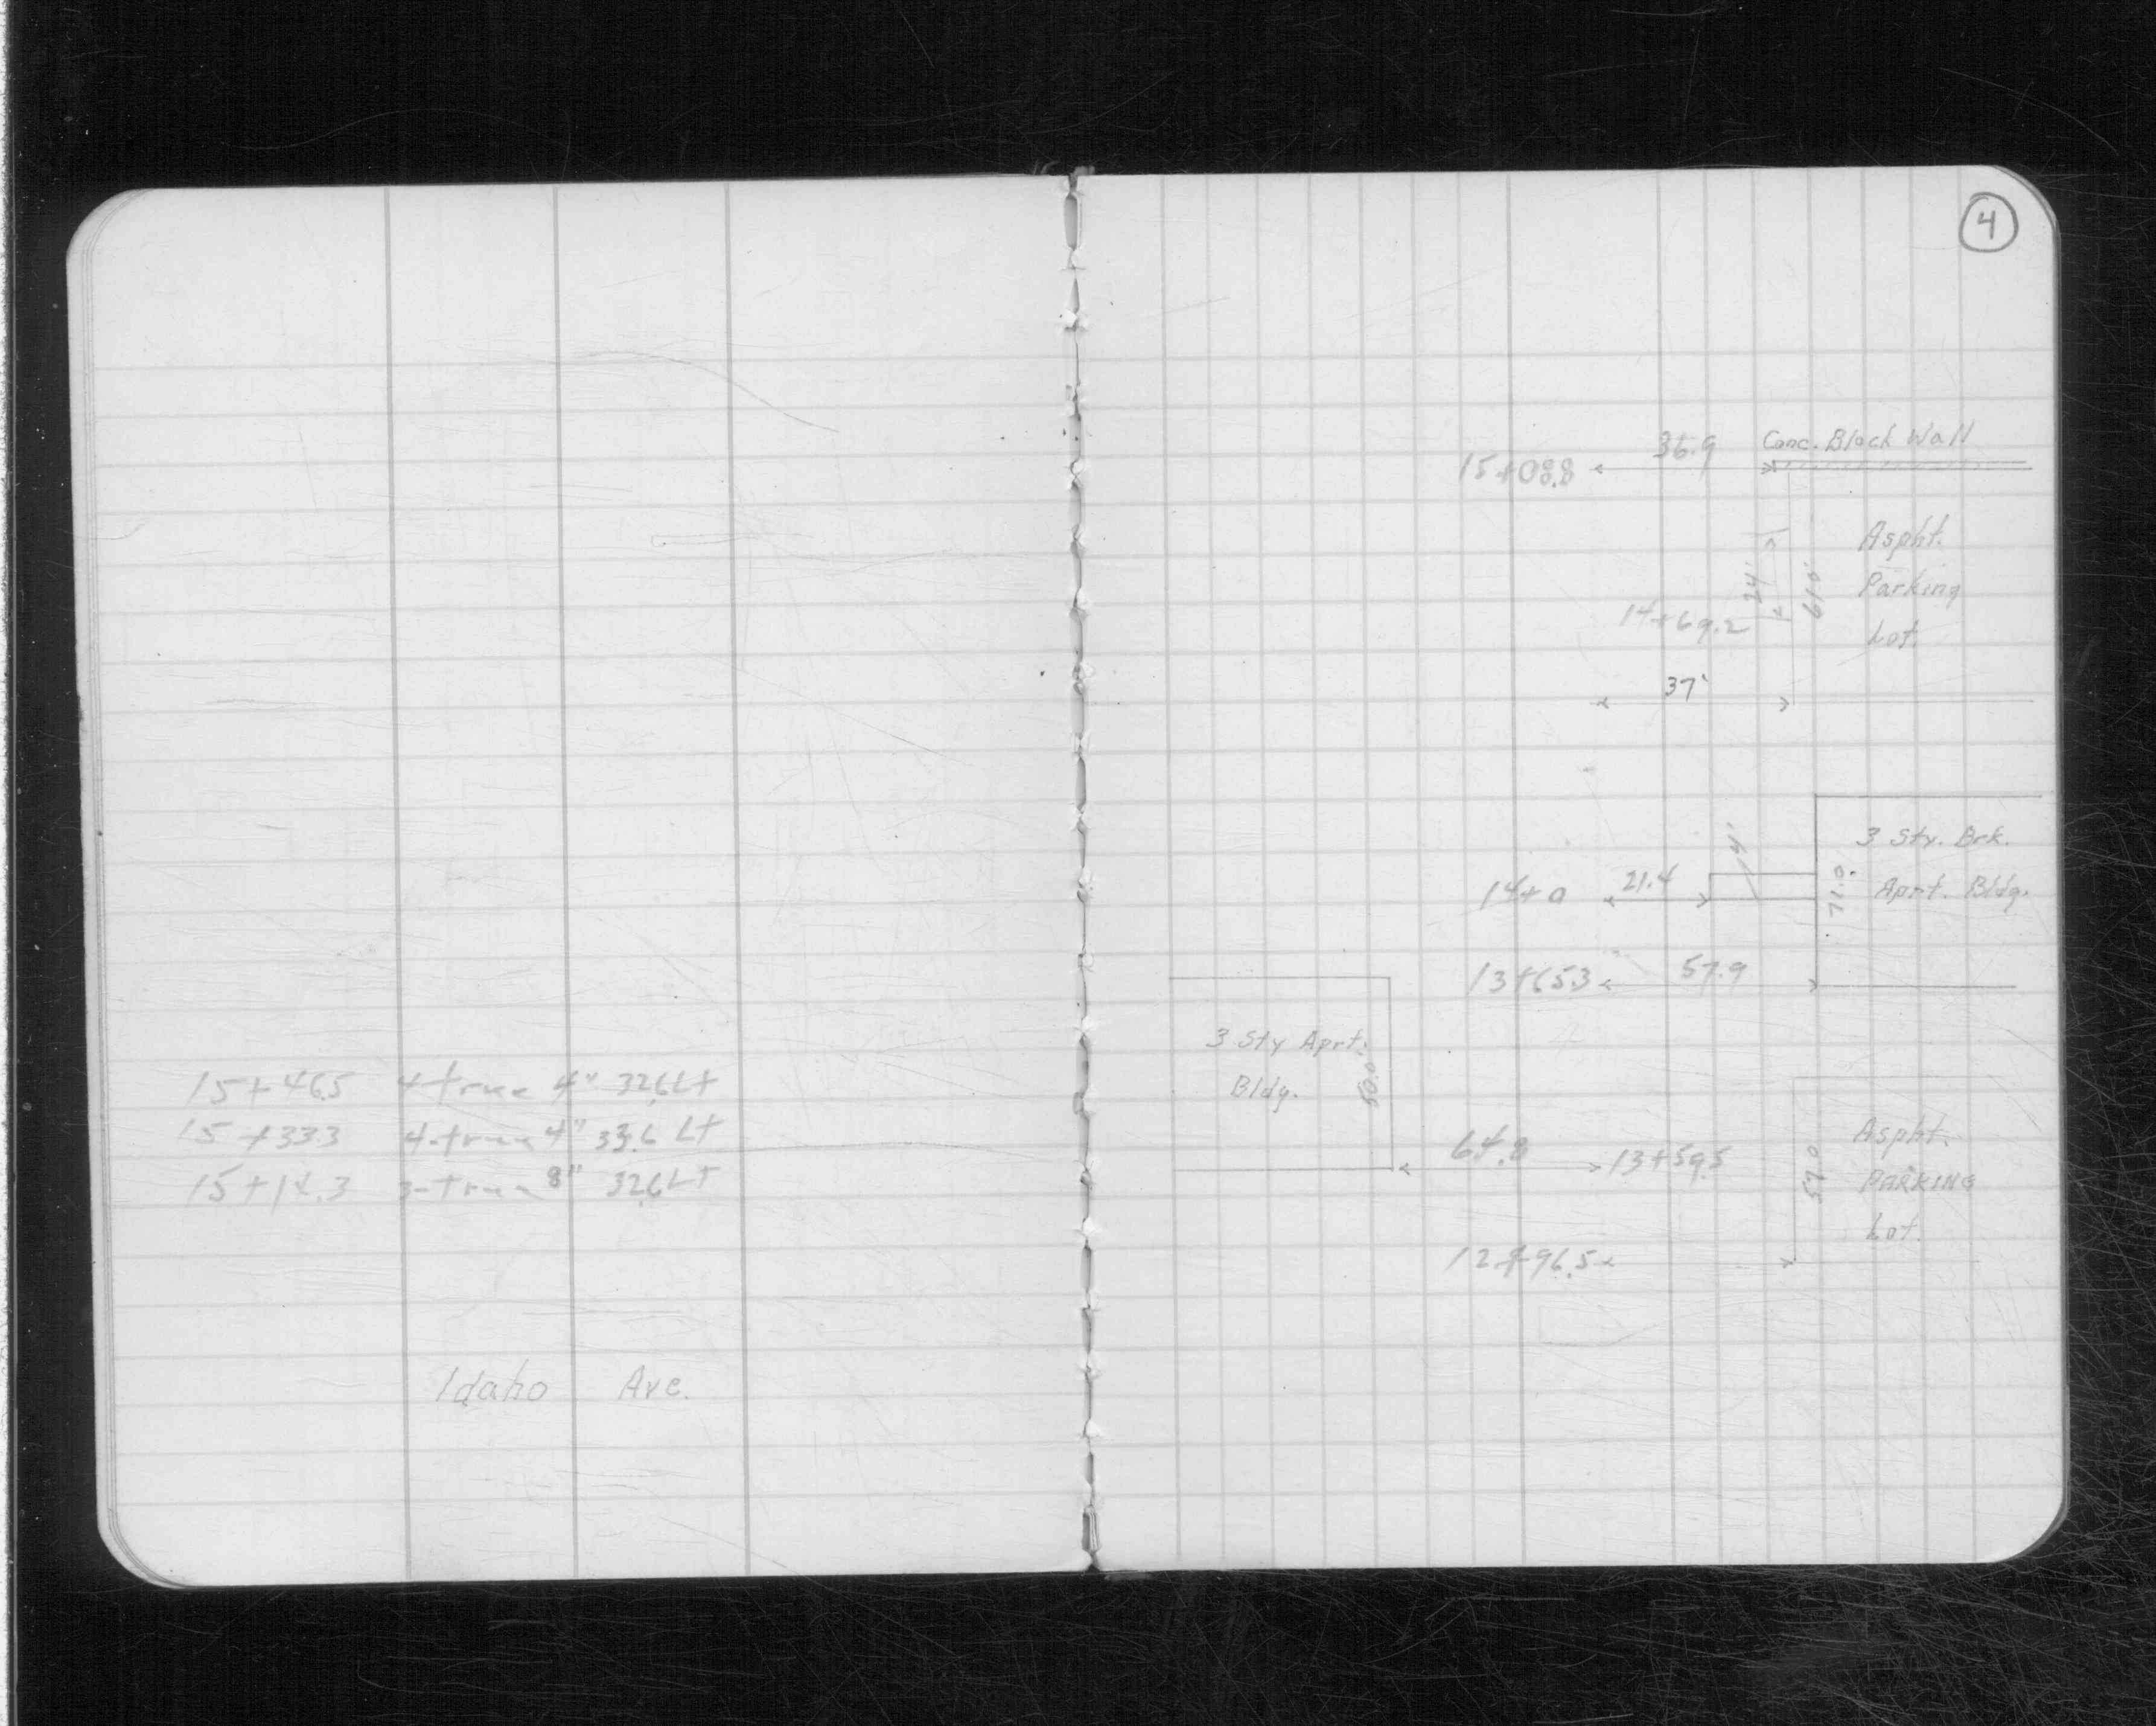 15+46.5 4-tree 4" 32.6 Lt
15+33.3 4-tree 4" 33.6 Lt
15+14.3 3-tree 8" 32.6 Lt
Idaho Ave.
4
36.9 Conc. Block Wall
15+08.8
Aspht.
24' 61.0' Parking
14+69.2 Lot.
37'
14'
3 Sty. Brk.
14+0 21.4 71.0' Aprt. Bldg.
13+65.3 57.9
3 Sty Aprt.
Bldg. 50.0
64.8 13+59.5 Aspht.
57.0 PARKING
Lot.
12+96.5